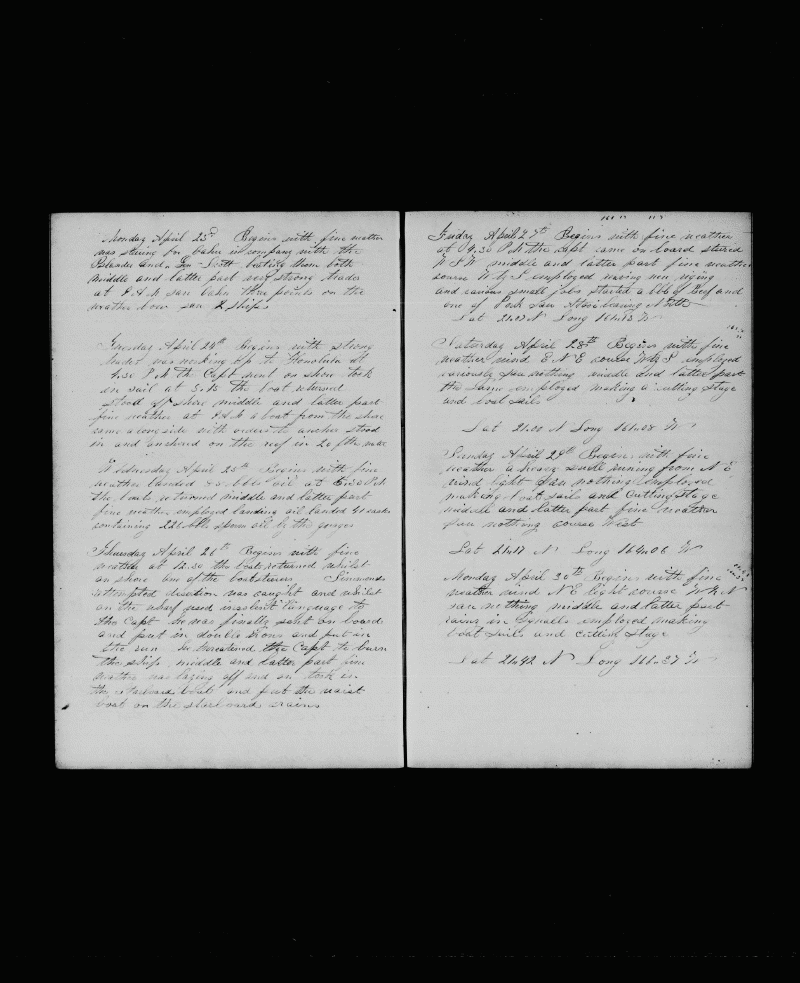 Monday April 23d Begins with fine weather
was stering for Oahu in company with the
Islander and Gen - Scott beating them both
middle and latter part strong trades
at P A M saw Oahu three points on the
weather bow saw 2 ships
Tuesday April 24th Begins with strong
trades was working up to Honolulu at
4.30 P M the Capt went on shore took
in sail at the boat returned
stood off shore middle and latter part
fine weather at A M a boat from the shore
came along side with orders to anchor stood
in and anchored on the reef in 20 fthm water
Wednesday April 25th Begins with fine
weather landed bbls oil at P M
the boats returned middle and latter part
fine weather employed landing oil landed 41 casks
containing 221 bbls sperm oil by the gauges
Thursday April 26th Begins with fine
weather at 12.30 the boats returned whilst
on shore one of the boatsteerers Simmonds
attempted desertion was caught and whilst
on the wharf used insolent language to
the Capt he was finally sent on board
and put in double irons and put in
the run he threatened the Capt to burn
the ship middle and latter part fine
weather was laying off and on took in
the starboard boat and put the waist
boat on the starboard cranes
Friday April 27th Begins with fine weather
at 4.30 P M the Capt came on board stered
W S W middle and latter part fine weather
course W by S employed reeving new riging
and various small jobs started a bbl of Beef and
one of Pork saw Atooi bearing N
Lat 21.17 N Long 161.13 W
Saturday April 28th Begins with fine
weather wind E N E course W by S employed
variously saw nothing middle and latter part
the same employed making a cutting stage
and boat sails
Lat 21.20 N Long 161.08 W
Sunday April 29th Begins with fine
weather a heavy swell runing from N E
wind light saw nothing employed
making boat sails and cutting stage
middle and latter part fine weather
saw nothing course West
Lat 21.17 N Long 164.06 W
Monday April 30th Begins with fine
weather wind N E light course W by N
saw nothing middle and latter part
rains in squalls employed making
boat sails and cutting stage
Lat 21.42 N Long 166.27 W